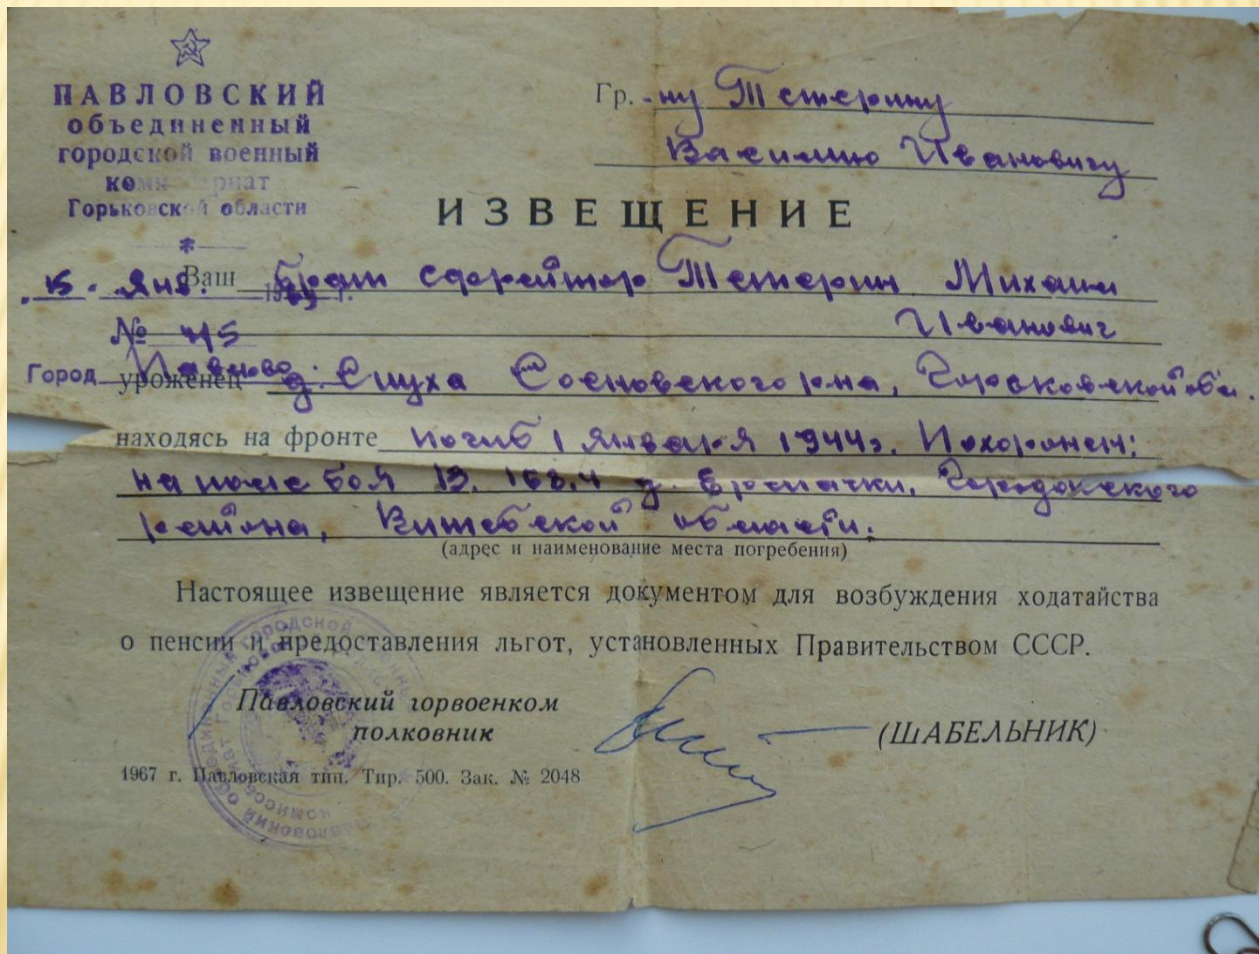 ПАВЛОВСКИЙ
объединенный
городской военный
комиссариат
Горьковской области
15. Янв. 19 г.
№ 415
Город Павлово
Гр.-ну Тетерину
Василию Ивановичу
ИЗВЕЩЕНИЕ
Ваш брат ефрейтор Тетерин Михаил
Иванович
уроженец д. Сиуха Сосновского р-на, Горьковской обл.
находясь на фронте погиб 1 января 1944г. Похоронен:
на поле боя В. 168.4 д. Городокского
района, Витебской области.
(адрес и наименование места погребения)
Настоящее извещение является документом для возбуждения ходатайства
о пенсии и предоставления льгот, установленных Правительством СССР.
Павловский горвоенком
полковник
(ШАБЕЛЬНИК)
1967 г. Павловская тип. Тир. 500. Зак. № 2048